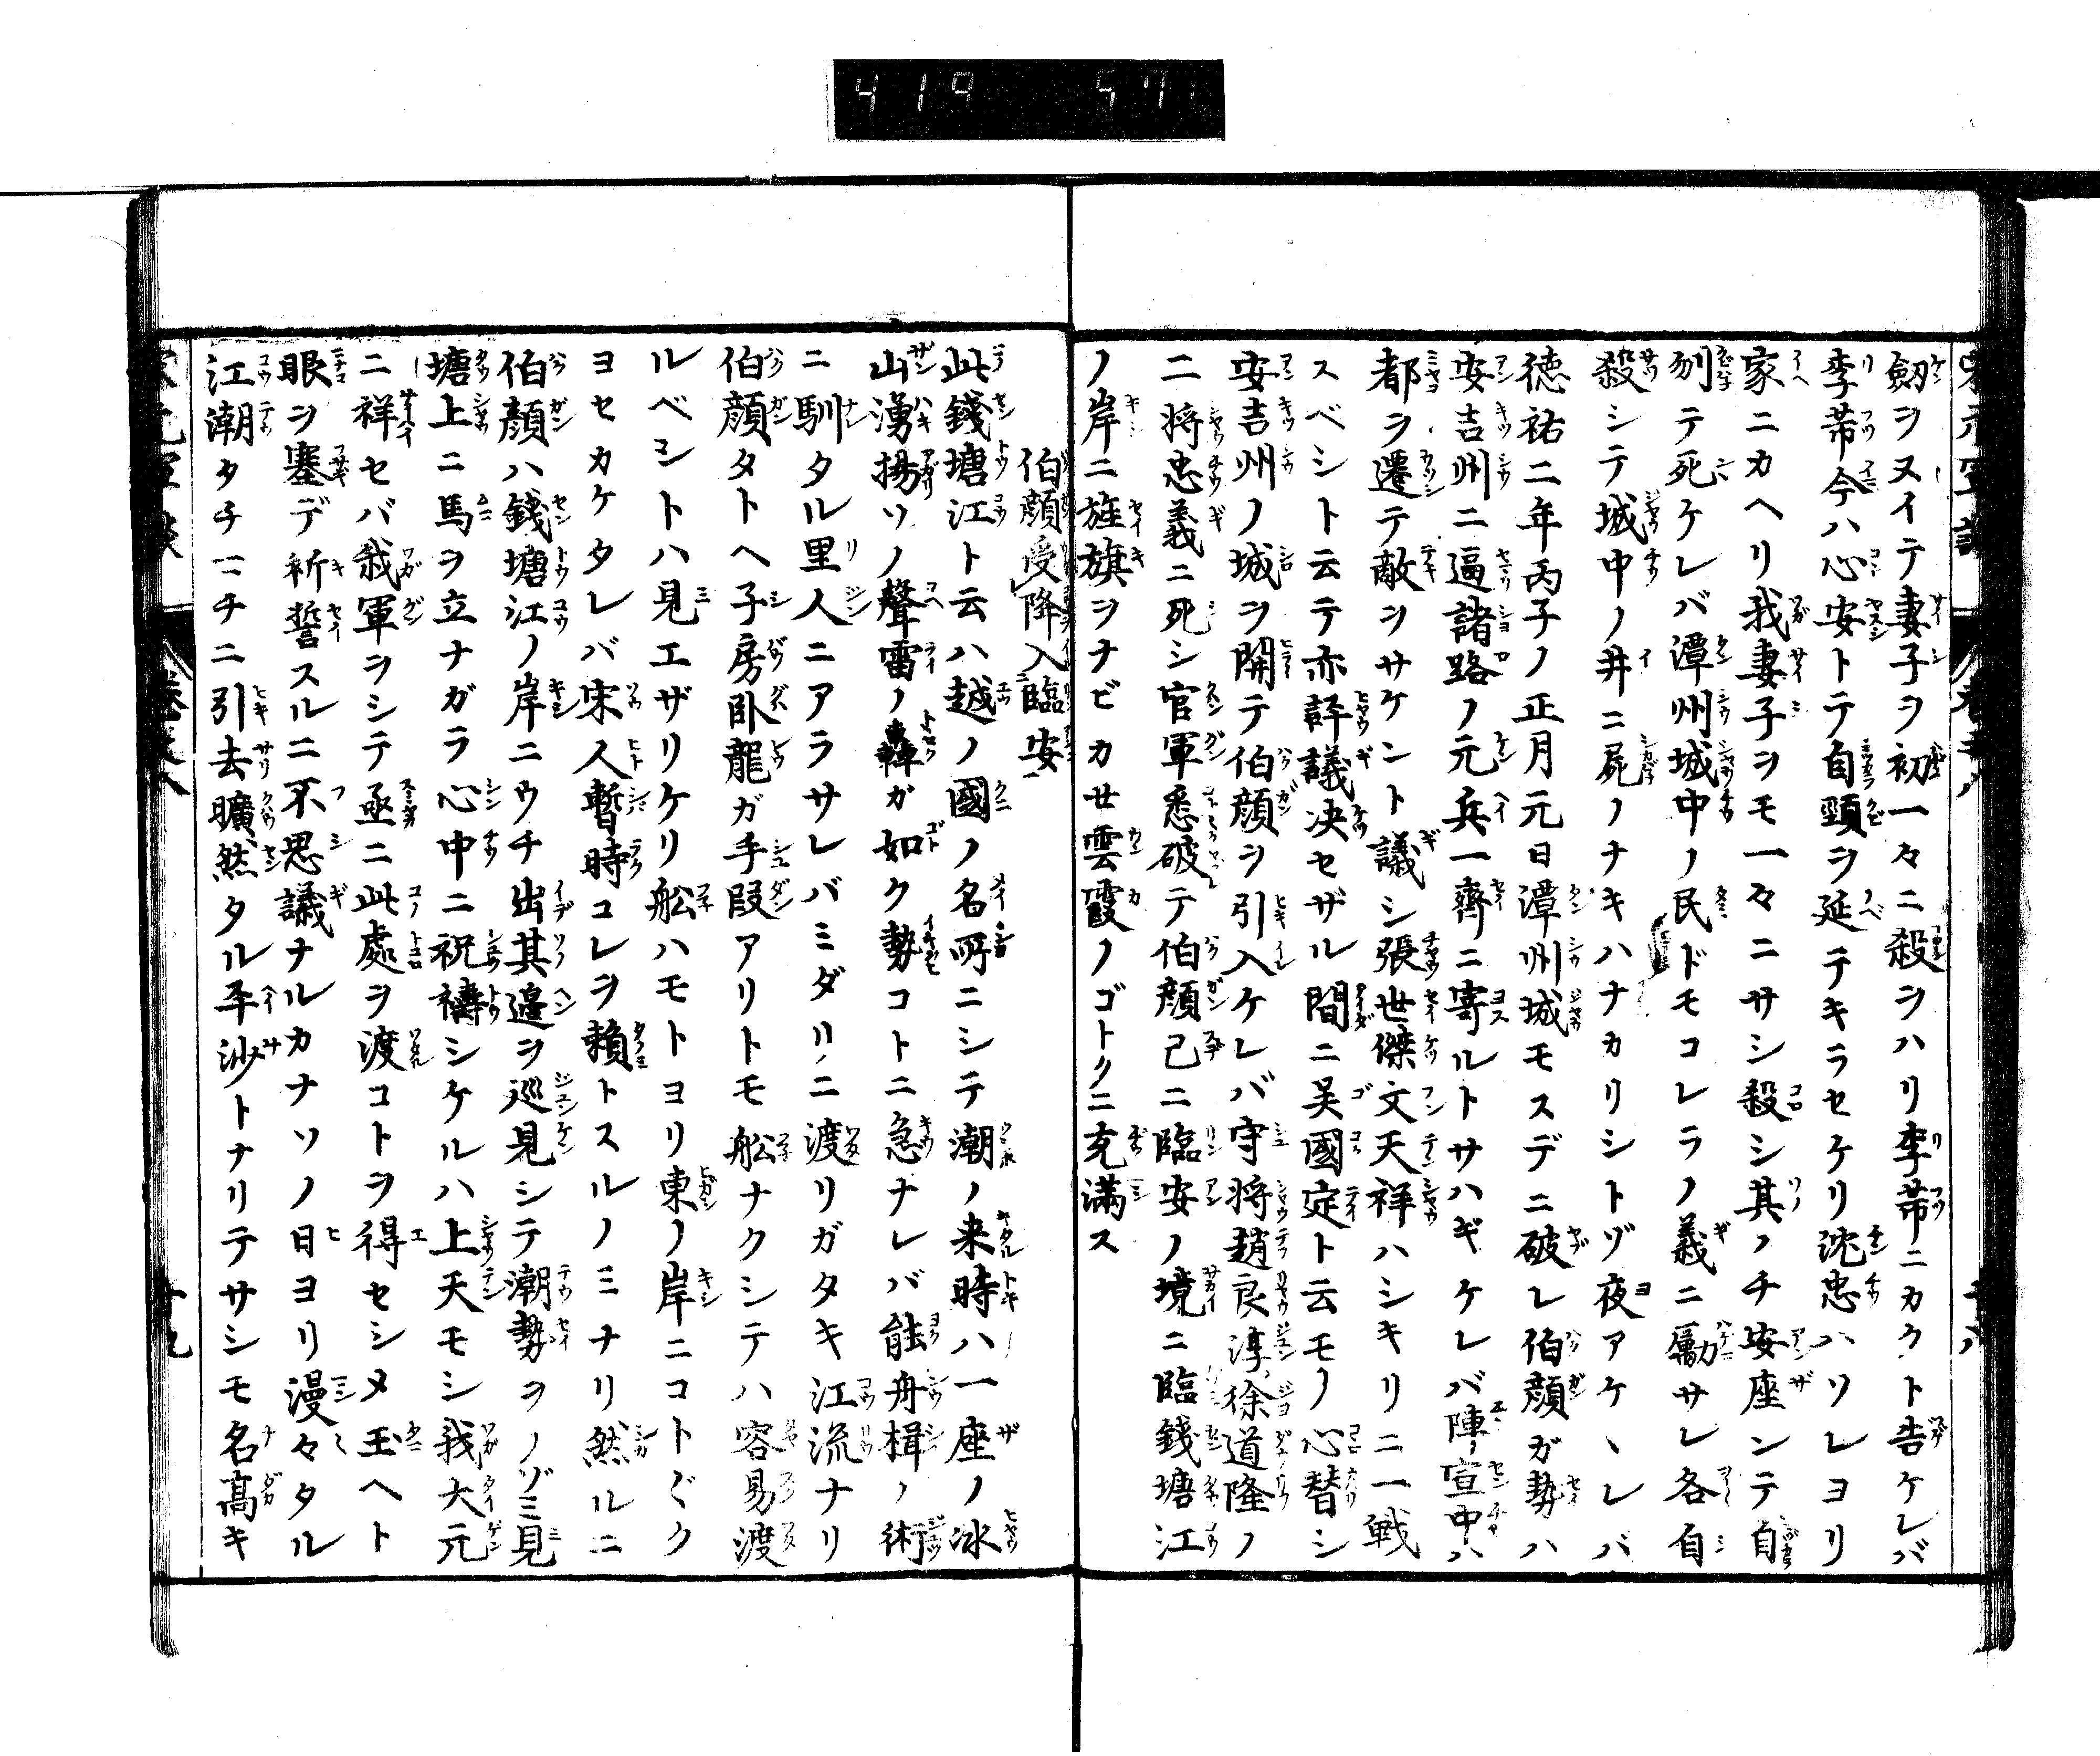 419 571
劔ヲヌイテ妻子ヲ初一々ニ殺ヲハリ李芾ニカクト告ケレバ
李芾今ハ心安トテ自頸ヲ延テキラセケリ沈忠ハソレヨリ
家ニカヘリ我妻子ヲモ一々ニサシ殺シ其ノチ安座シテ自
刎テ死ケレバ潭州城中ノ民ドモコレラノ義ニ勵サレ各自
殺シテ城中ノ井ニ屍ノナキハナカリシトゾ夜アケヽレバ
徳祐二年丙子ノ正月元日潭州城モスデニ破レ伯顔ガ勢ハ
安吉州ニ逼諸路ノ元兵一齊ニ寄ルトサハギケレバ陳宣中ハ
都ヲ遷テ敵ヲサケント議シ張世傑文天祥ハシキリニ一戦
スベシト云テ亦評議决セザル間ニ吴國定ト云モノ心替シ
安吉州ノ城ヲ開テ伯顔ヲ引入ケレバ守将趙良淳徐道隆ノ
二将忠義ニ死シ官軍悉破テ伯顔已ニ臨安ノ境ニ臨錢塘江
ノ岸ニ旌旗ヲナビカセ雲霞ノゴトクニ充満ス
伯顔受降入臨安
此錢塘江ト云ハ越ノ國ノ名所ニシテ潮ノ来時ハ一座ノ冰
山湧揚ソノ聲雷ノ轟ガ如ク勢コトニ急ナレバ能舟楫ノ術
ニ馴タル里人ニアラサレバミダリニ渡リガタキ江流ナリ
伯顔タトヘ子房臥龍ガ手段アリトモ舩ナクシテハ容易渡
ルベシトハ見エザリケリ舩ハモトヨリ東ノ岸ニコトゞク
ヨセカケタレバ宋人暫時コレヲ頼トスルノミナリ然ルニ
伯顔ハ錢塘江ノ岸ニウチ出其邉ヲ巡見シテ潮勢ヲノゾミ見
塘上ニ馬ヲ立ナガラ心中ニ祝禱シケルハ上天モシ我大元
ニ祥セバ我軍ヲシテ亟ニ此處ヲ渡コトヲ得セシメ玉ヘト
眼ヲ塞デ祈誓スルニ不思議ナルカナソノ日ヨリ漫々タル
江潮タチマチニ引去曠然タル平沙トナリテサシモ名高キ